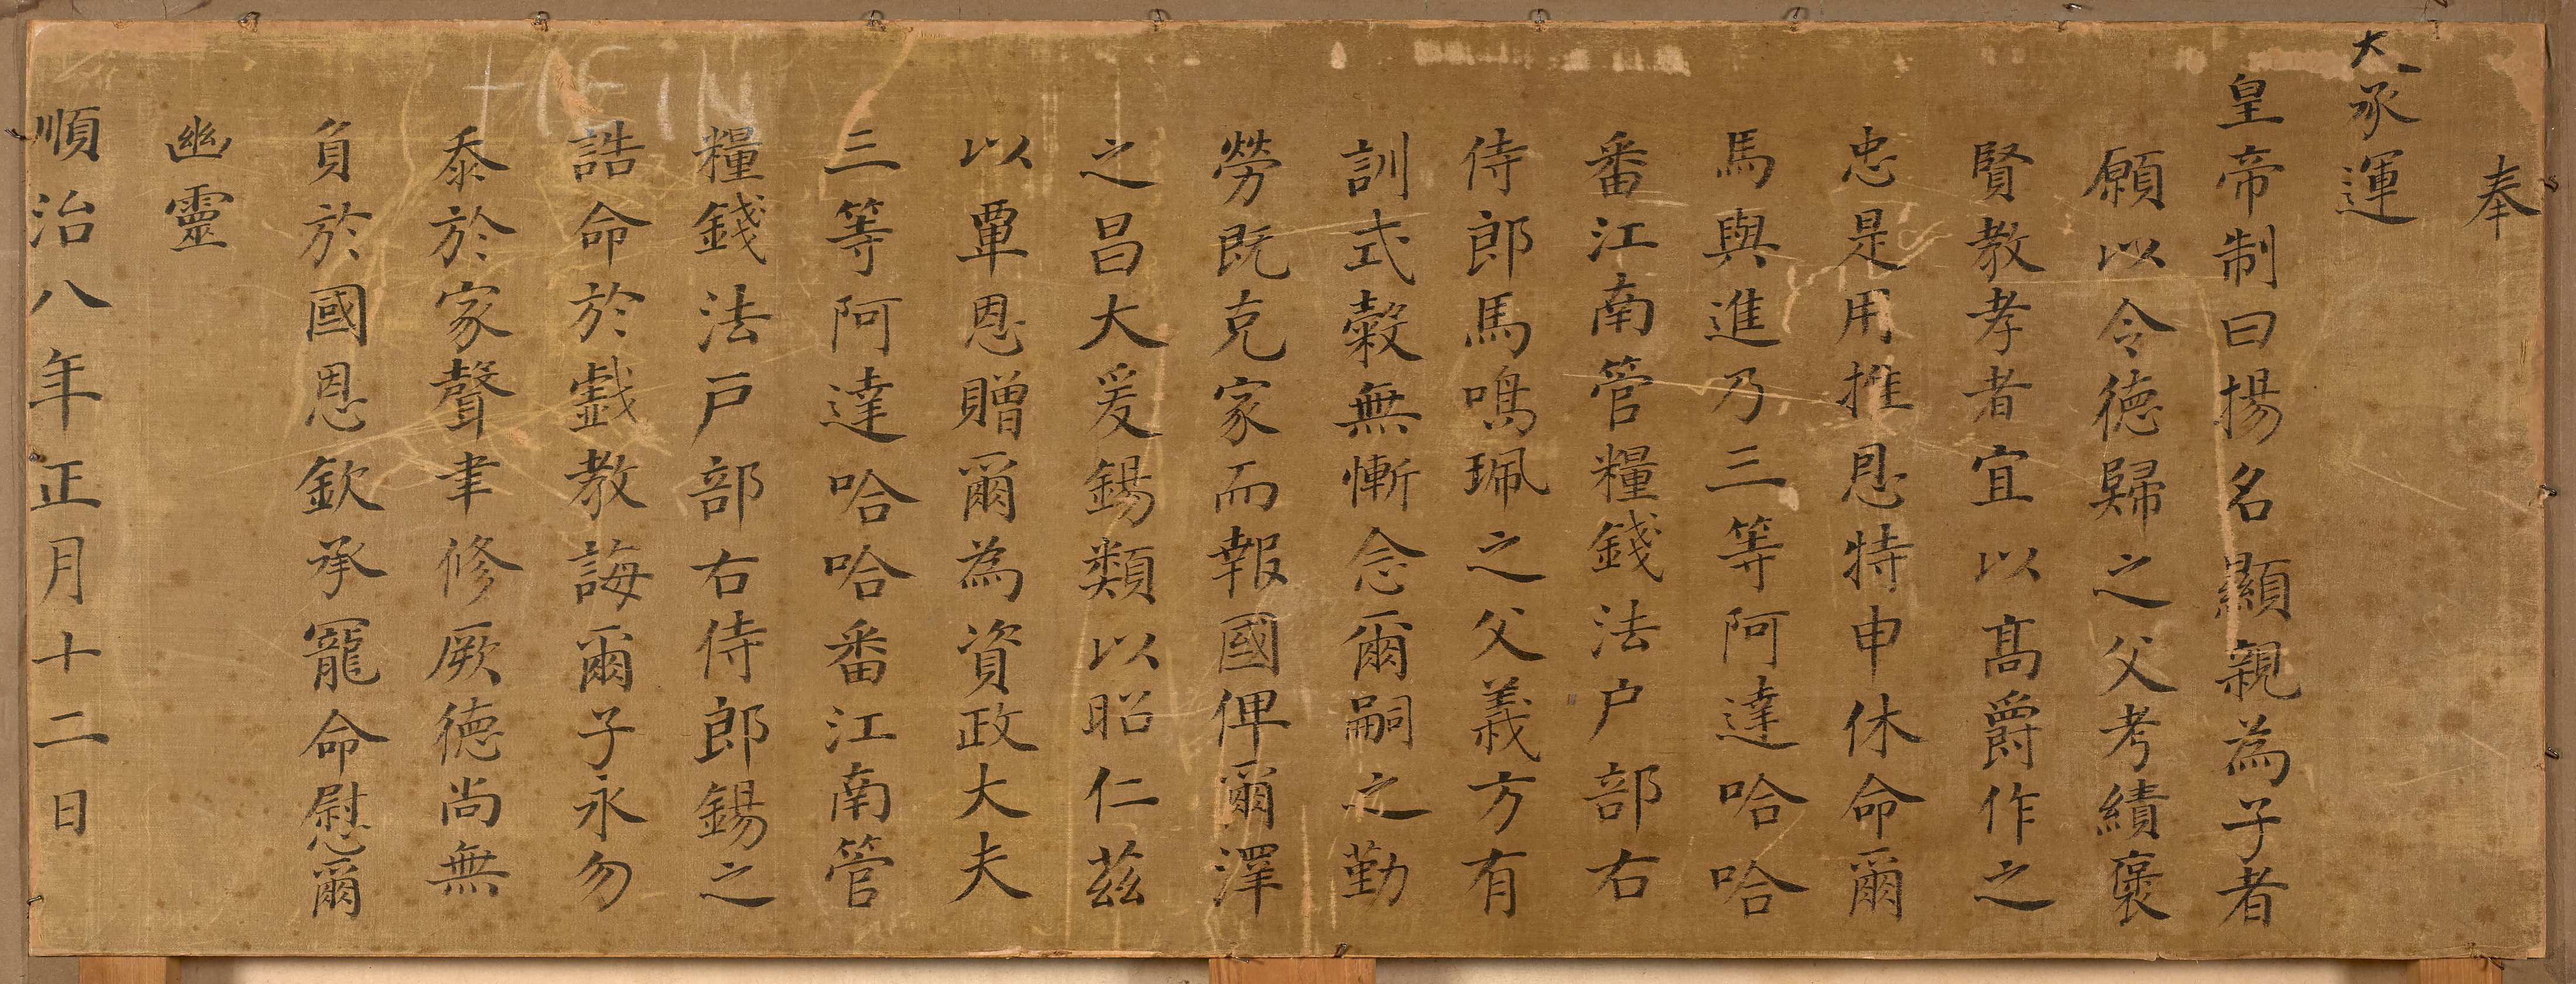 奉
天承運
皇帝制曰揚名顯親為子者
願以令德歸之父考績褒
賢教孝者宜以高爵作之
忠是用推恩特申休命爾
馬與進乃三等阿達哈哈
番江南管糧錢法戶部右
侍郎馬鳴珮之父義方有
訓式穀無慚念爾嗣之勤
勞既克家而報國俾爾澤
之昌大爰錫類以昭仁茲
以覃恩贈爾為資政大夫
三等阿達哈哈番江南管
糧錢法戶部右侍郎錫之
誥命於戲教誨爾子永勿
忝於家聲聿修厥德尚無
負於國恩欽承寵命慰爾
幽靈
順治八年正月十二日
HEiN